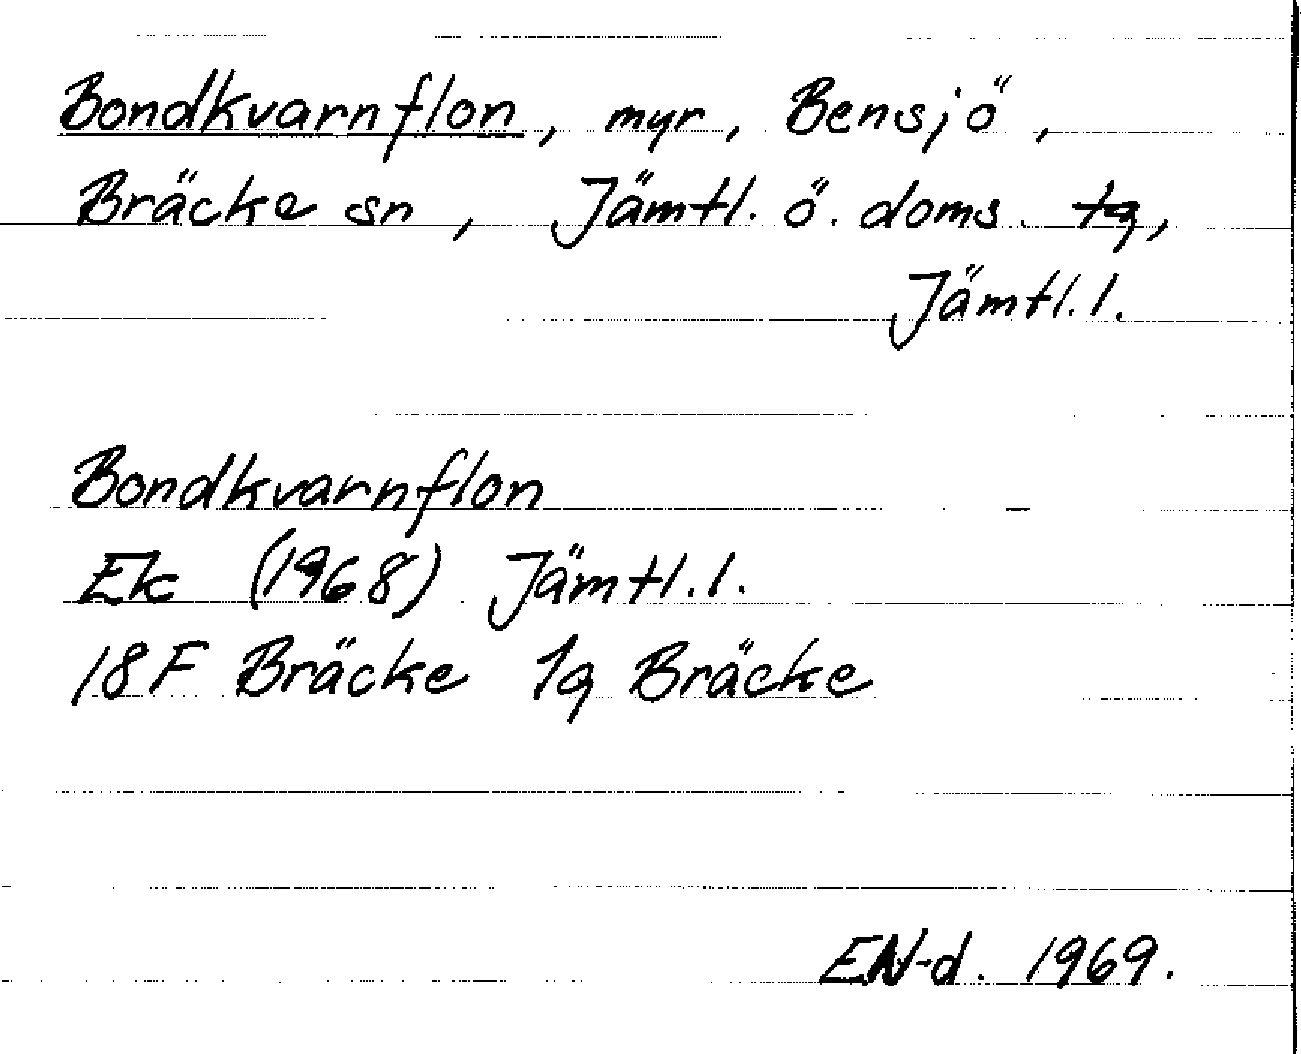 Bondkvarnflon, myr, Bensjö,
Bräcke sn, Jämtl. ö. doms. tg,
Jämtl. l.
Bondkvarnflon
Ek (1968) Jämtl. l.
18F Bräcke 1g Bräcke
EN-d. 1969.